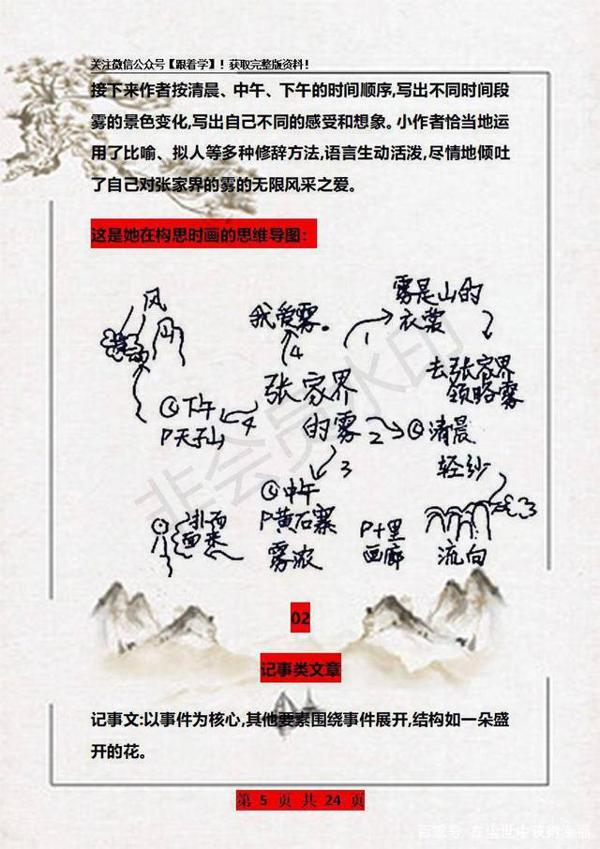 关注微信公众号【跟着学】！获取完整版资料！
接下来作者按清晨、中午、下午的时间顺序,写出不同时间段
雾的景色变化,写出自己不同的感受和想象。小作者恰当地运
用了比喻、拟人等多种修辞方法,语言生动活泼,尽情地倾吐
了自己对张家界的雾的无限风采之爱。
这是她在构思时画的思维导图：
风
我爱雾。
4
1
雾是山的
衣裳
去张家界
领略雾
张家界
的雾
下午
P天子山
4
2
清晨
轻纱
3
中午
P黄石寨
雾浓
扑面
P十里
画廊
流向
非会员水印
02
记事类文章
记事文:以事件为核心,其他要素围绕事件展开,结构如一朵盛
开的花。
第 5 页 共 24 页